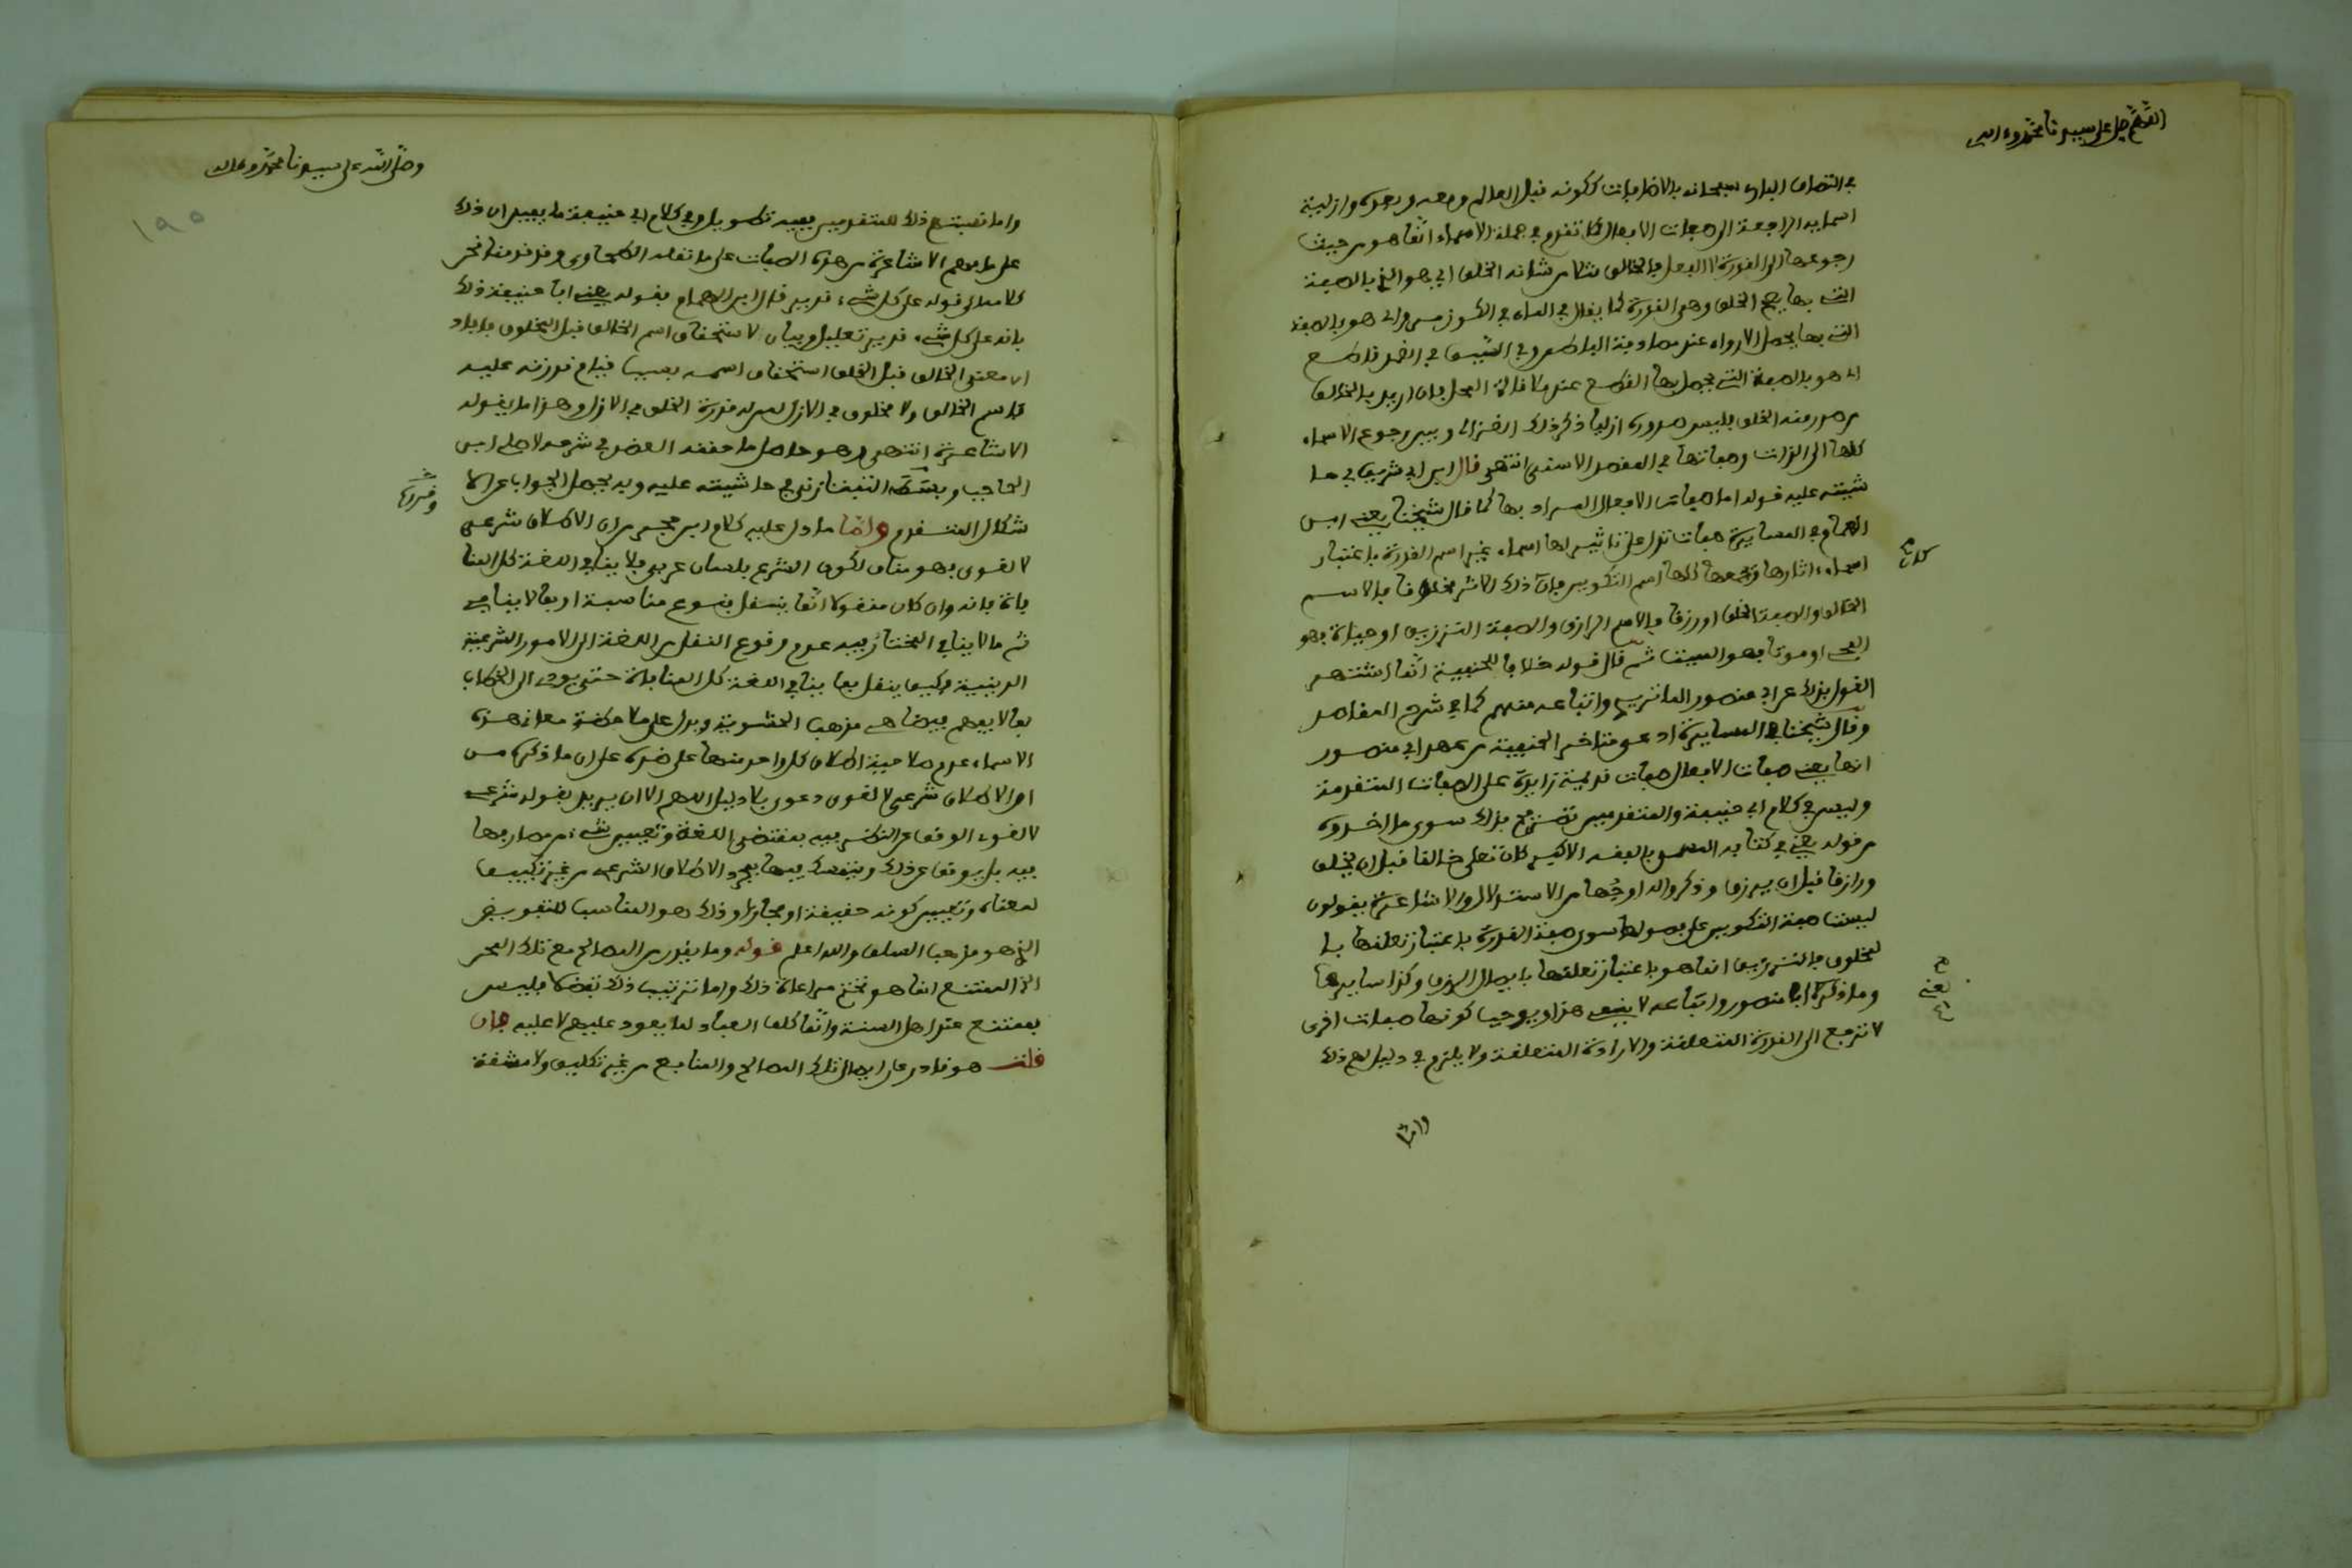 اللهم صل على سيدنا محمد وءاله
في اتصاف البارى سبحانه بالاضافيات ككونه قبل العالم ومعه وبعده وازلية
اسمايه الراجعة الى صفات الافعال كما تقدم في جملة الاسماء انما هو من حيث
رجوعها الى القدرة لا الفعل فالخالق مثلا من شانه الخلق اي هو الذي بالصفة
التي بها يصح الخلق وهي القدرة كما يقال في الماء في الكوز مرو اى هو بالصفة
التي بها يحصل الارواء عند مصادفة الباطن وفي السيف في الغمد قاطع
اى هو بالصفة التي يحصل بها القطع عند ملاقاة المحل فان اريد بالخالق
من صدر منه الخلق فليس صدوره ازليا ذكر ذلك الغزالى وبين رجوع الاسماء
كلها الى الذات وصفاتها في المقصد الاسنى انتهى قال ابن ابي شريف في حا
شيته عليه قوله اما صفات الافعال المراد بها كما قال شيخنا يعني ابن
الهمام في المسايرة صفات تدل على تاثير لها اسماء غير اسم القدرة باعتبار
اسماء اثارها يجمعها كلها اسم التكوين فان كان ذلك الاثر مخلوقا فالاسم
الخالق والصفة الخلق او رزقا فالاسم الرازق والصفة الترزيق او حياة فهو
المحيي او موتا فهو المميت ثم قال قوله خلافا للحنفية انما اشتهر
القول بذلك عن ابي منصور الماتريدي واتباعه منهم كما في شرح المقاصد
وقال شيخنا في المسايرة ادعى متاخر الحنفية من عهد ابي منصور
انها يعني صفات الافعال صفات قديمة زايدة على الصفات المتقدمة
وليس في كلام ابي حنيفة والمتقدمين تصريح بذلك سوى ما اخذوه
من قوله يعني في كتابه المسمى بالفقه الاكبر كان تعلى خالقا قبل ان يخلق
ورازقا قبل ان يرزق وذكروا له اوجها من الاستدلال والاشاعرة يقولون
ليست صفة التكوين على فصولها سوى صفة القدرة باعتبار تعلقها با
لمخلوق فالترزيق انما هو باعتبار تعلقها بايصال الرزق وكذا سايرها
وما ذكره ابا منصور واتباعه لا ينفي هذا ويوجب كونها صفات اخرى
لا ترجع الى القدرة المتعلقة والارادة المتعلقة ولا يلزم في دليل لهم ذلك
واما
وصلى الله على سيدنا محمد وءاله
١٩٥
واما نسبتهم ذلك للمتقدمين ففيه نظر بل في كلام ابي حنيفة ما يفيد ان ذلك
على ما فهم الاشاعرة من هذه الصفات على ما نقله الطحاوي وقد قدمنا نحن
كلامه الى قوله على كل شىء قدير قال ابن الهمام فقوله يعني ابا حنيفة ذلك
بانه على كل شىء قدير تعليل وبيان لاستحقاق اسم الخالق قبل المخلوق فافاد
ان معنى الخالق قبل الخلق استحقاق اسمه بسبب قيام قدرته عليه
فاسم الخالق ولا مخلوق في الازل لمن له قدرة الخلق في الازل وهذا ما يقوله
الاشاعرة انتهى وهو حاصل ما حققه العضد في شرحه لاصلي ابن
الحاجب وبسطه التفتازني في حاشيته عليه وبه يحصل الجواب عن الا
شكال المتقدم واما ما دل عليه كلام ابن حجر من ان الاطلاق شرعي
لا لغوي فهو مناف لكون الشرع بلسان عربي فلا ينافي اللغة كل المنا
فاة فانه وان كان منقولا انما ينقل بنوع مناسبة او بما لا ينافي
ثم ما لا ينافي المختار فيه عدم وقوع النقل من اللغة الى الامور الشرعية
الدينية فكيف ينقل بما ينافي اللغة كل المنافاة حتى يؤدى الى الخطاب
بما لا يفهم فيضاهي مذهب الحشوية ويدل على ملاحظة معاني هذه
الاسماء عدم صلاحية اطلاق كل واحد منها على ضده على ان ما ذكره من
امر الاطلاق شرعي لا لغوي دعوى بلا دليل اللهم الا ان يريد بقوله شرعي
لا لغوى الوقف عن التكثير فيه بمقتضى اللغة وتعيين شىء من مصارفها
فيه بل يوقف عن ذلك ويتمسك فيها بمجرد الاطلاق الشرعي من غير تكييف
لمعناه وتعيين كونه حقيقة او مجازا وذلك هو المناسب للتفويض
الذي هو مذهب السلف والله اعلم قوله وما يقدر من المصالح مع تلك المحن
الخ الممتنع انما هو تحتم مراعاة ذلك واما ترتيب ذلك تفضلا فليس
بممتنع عند اهل السنة وانما كلف العباد لما يعود عليهم لا عليه فان
قلت هو قادر على ايصال تلك المصالح والمنافع من غير تكليف ولا مشقة